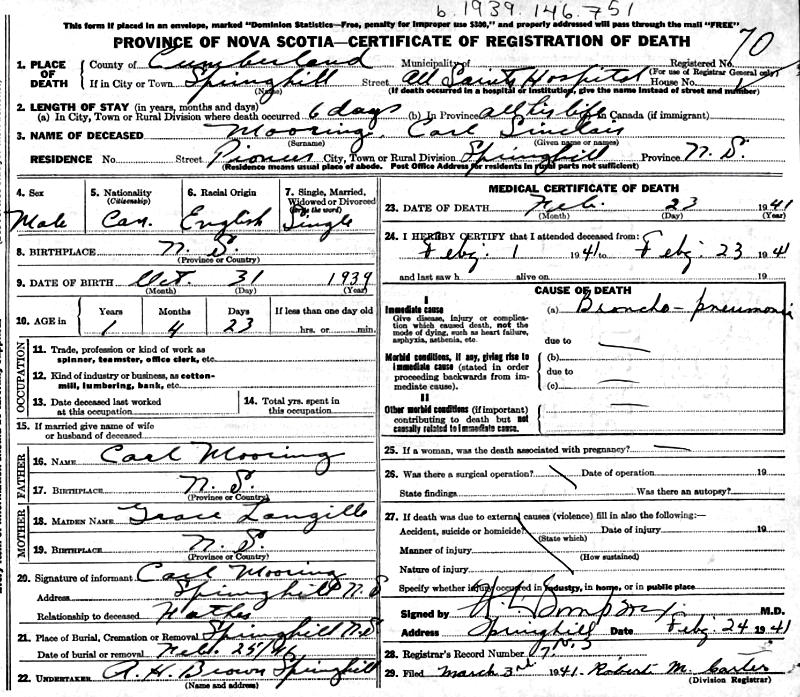 b. 1939. 146. 751
This form if placed in an envelope, marked "Dominion Statistics—Free, penalty for improper use $300," and properly addressed will pass through the mail "FREE"
PROVINCE OF NOVA SCOTIA—CERTIFICATE OF REGISTRATION OF DEATH
70
1. PLACE OF DEATH
County of Cumberland Municipality of Registered No.
(For use of Registrar General only)
If in City or Town Springhill Street All Saints Hospital House No.
(Name) (If death occurred in a hospital or institution, give the name instead of street and number)
2. LENGTH OF STAY (in years, months and days)
(a) In City, Town or Rural Division where death occurred 6 days (b) In Province all his life Canada (if immigrant)
3. NAME OF DECEASED Mooring, Carl Sinclair
(Surname) (Given name or names)
RESIDENCE No. Street Pioneer City, Town or Rural Division Springhill Province N. S.
(Residence means usual place of abode. Post Office Address for residents in rural parts not sufficient)
4. Sex
Male
5. Nationality
(Citizenship)
Can.
6. Racial Origin
English
7. Single, Married, Widowed or Divorced
(write the word)
Single
8. BIRTHPLACE N. S.
(Province or Country)
9. DATE OF BIRTH Oct. 31 1939
(Month) (Day) (Year)
10. AGE in
Years Months Days If less than one day old
1 4 23 hrs. or min.
OCCUPATION
11. Trade, profession or kind of work as
spinner, teamster, office clerk, etc.
12. Kind of industry or business, as cotton-
mill, lumbering, bank, etc.
13. Date deceased last worked
at this occupation
14. Total yrs. spent in
this occupation
15. If married give name of wife
or husband of deceased
FATHER
16. NAME Carl Mooring
17. BIRTHPLACE N. S.
(Province or Country)
MOTHER
18. MAIDEN NAME Grace Langille
19. BIRTHPLACE N. S.
(Province or Country)
20. Signature of informant Carl Mooring
Address Springhill N. S
Relationship to deceased Father
21. Place of Burial, Cremation or Removal Springhill N. S
Date of burial or removal Feb. 25/
22. UNDERTAKER A. H. Brown Springhill
(Name and address)
MEDICAL CERTIFICATE OF DEATH
23. DATE OF DEATH Feb. 23 1941
(Month) (Day) (Year)
24. I HEREBY CERTIFY that I attended deceased from:
Feby. 1 1941 to Feby. 23 1941
and last saw h alive on 19
CAUSE OF DEATH
I
Immediate cause
Give disease, injury or complica-
tion which caused death, not the
mode of dying, such as heart failure,
asphyxia, asthenia, etc.
(a) Broncho-pneumonia
due to
Morbid conditions, if any, giving rise to
immediate cause (stated in order
proceeding backwards from im-
mediate cause).
(b)
due to
(c)
II
Other morbid conditions (if important)
contributing to death but not
causally related to immediate cause.
25. If a woman, was the death associated with pregnancy?
26. Was there a surgical operation? Date of operation 19
State findings Was there an autopsy?
27. If death was due to external causes (violence) fill in also the following:—
Accident, suicide or homicide? Date of injury 19
(State which)
Manner of injury
(How sustained)
Nature of injury
Specify whether injury occurred in industry, in home, or in public place
Signed by M.D.
Address Springhill Date Feby. 24 1941
28. Registrar's Record Number
29. Filed March 3rd 1941. Robert M. Carter
(Division Registrar)